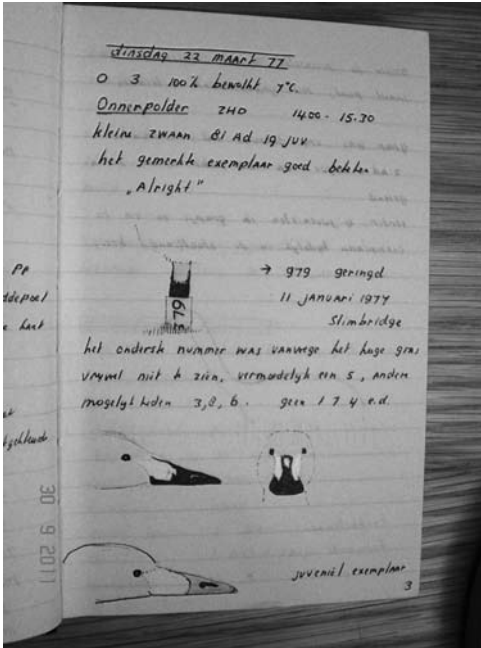 dinsdag 22 maart 77
O 3 100% bewolkt 7°C.
Onnerpolder ZHD 14.00 - 15.30
kleine zwaan 81 Ad 19 juv
het gemerkte exemplaar goed bekeken
„Alright"
→ 979 geringd
11 januari 1977
Slimbridge
979
het onderste nummer was vanwege het hoge gras
vrijwel niet te zien, vermoedelijk een 5, andere
mogelijkheden 3, 8, 6. geen 1 7 4 e.d.
juveniel exemplaar
3
30 9 2011